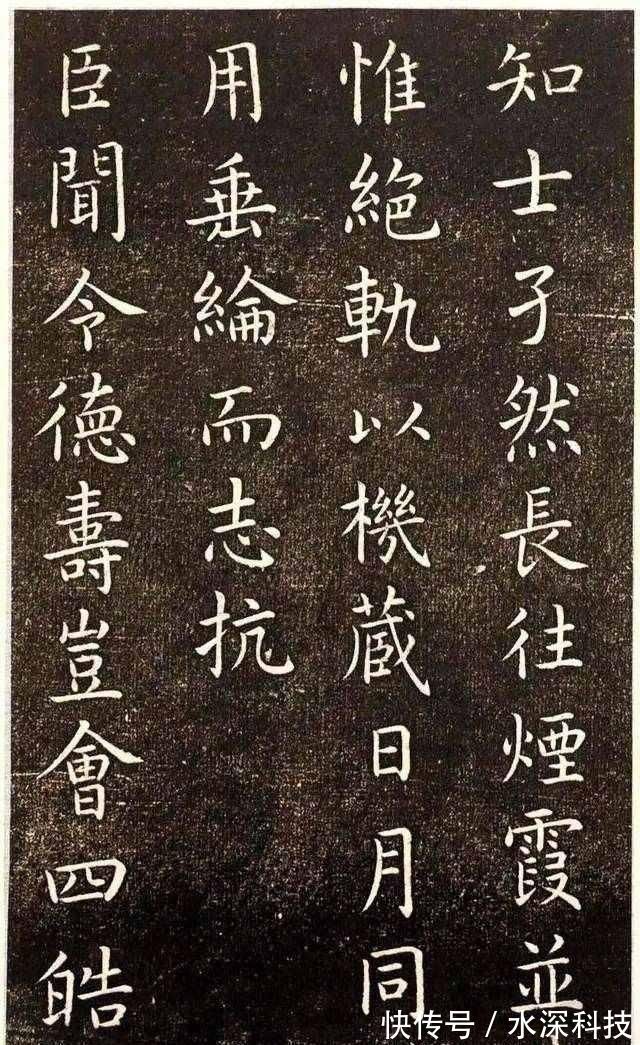 知士孑然長往煙霞並
惟絕軌以機蔵日月同
用垂綸而志抗
臣聞令德壽豈會四皓
快传号 / 水深科技